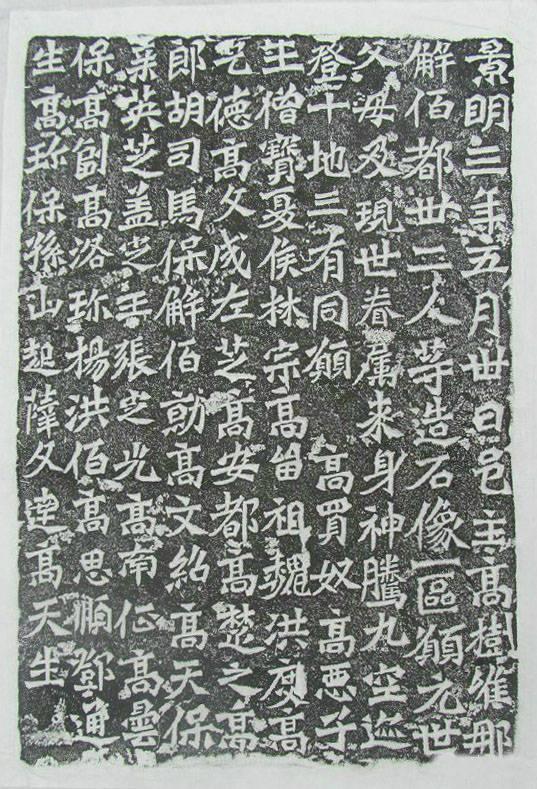 景明三年五月卅日邑主高樹維那
解佰都卅二人等造石像一區願元世
父母及現世眷屬来身神騰九空迹
登十地三有同願 高買奴 高惡子
王僧寶夏侯林宗高留祖魏洪度高
乞德高文成左芝高安都高楚之高
郎胡司馬保解佰勍高文紹高天保
英芝盖定王張定光高南征高曇
保高副高洛珎楊洪佰高思順鄧通
生高珎保孫山起薩文達高天生